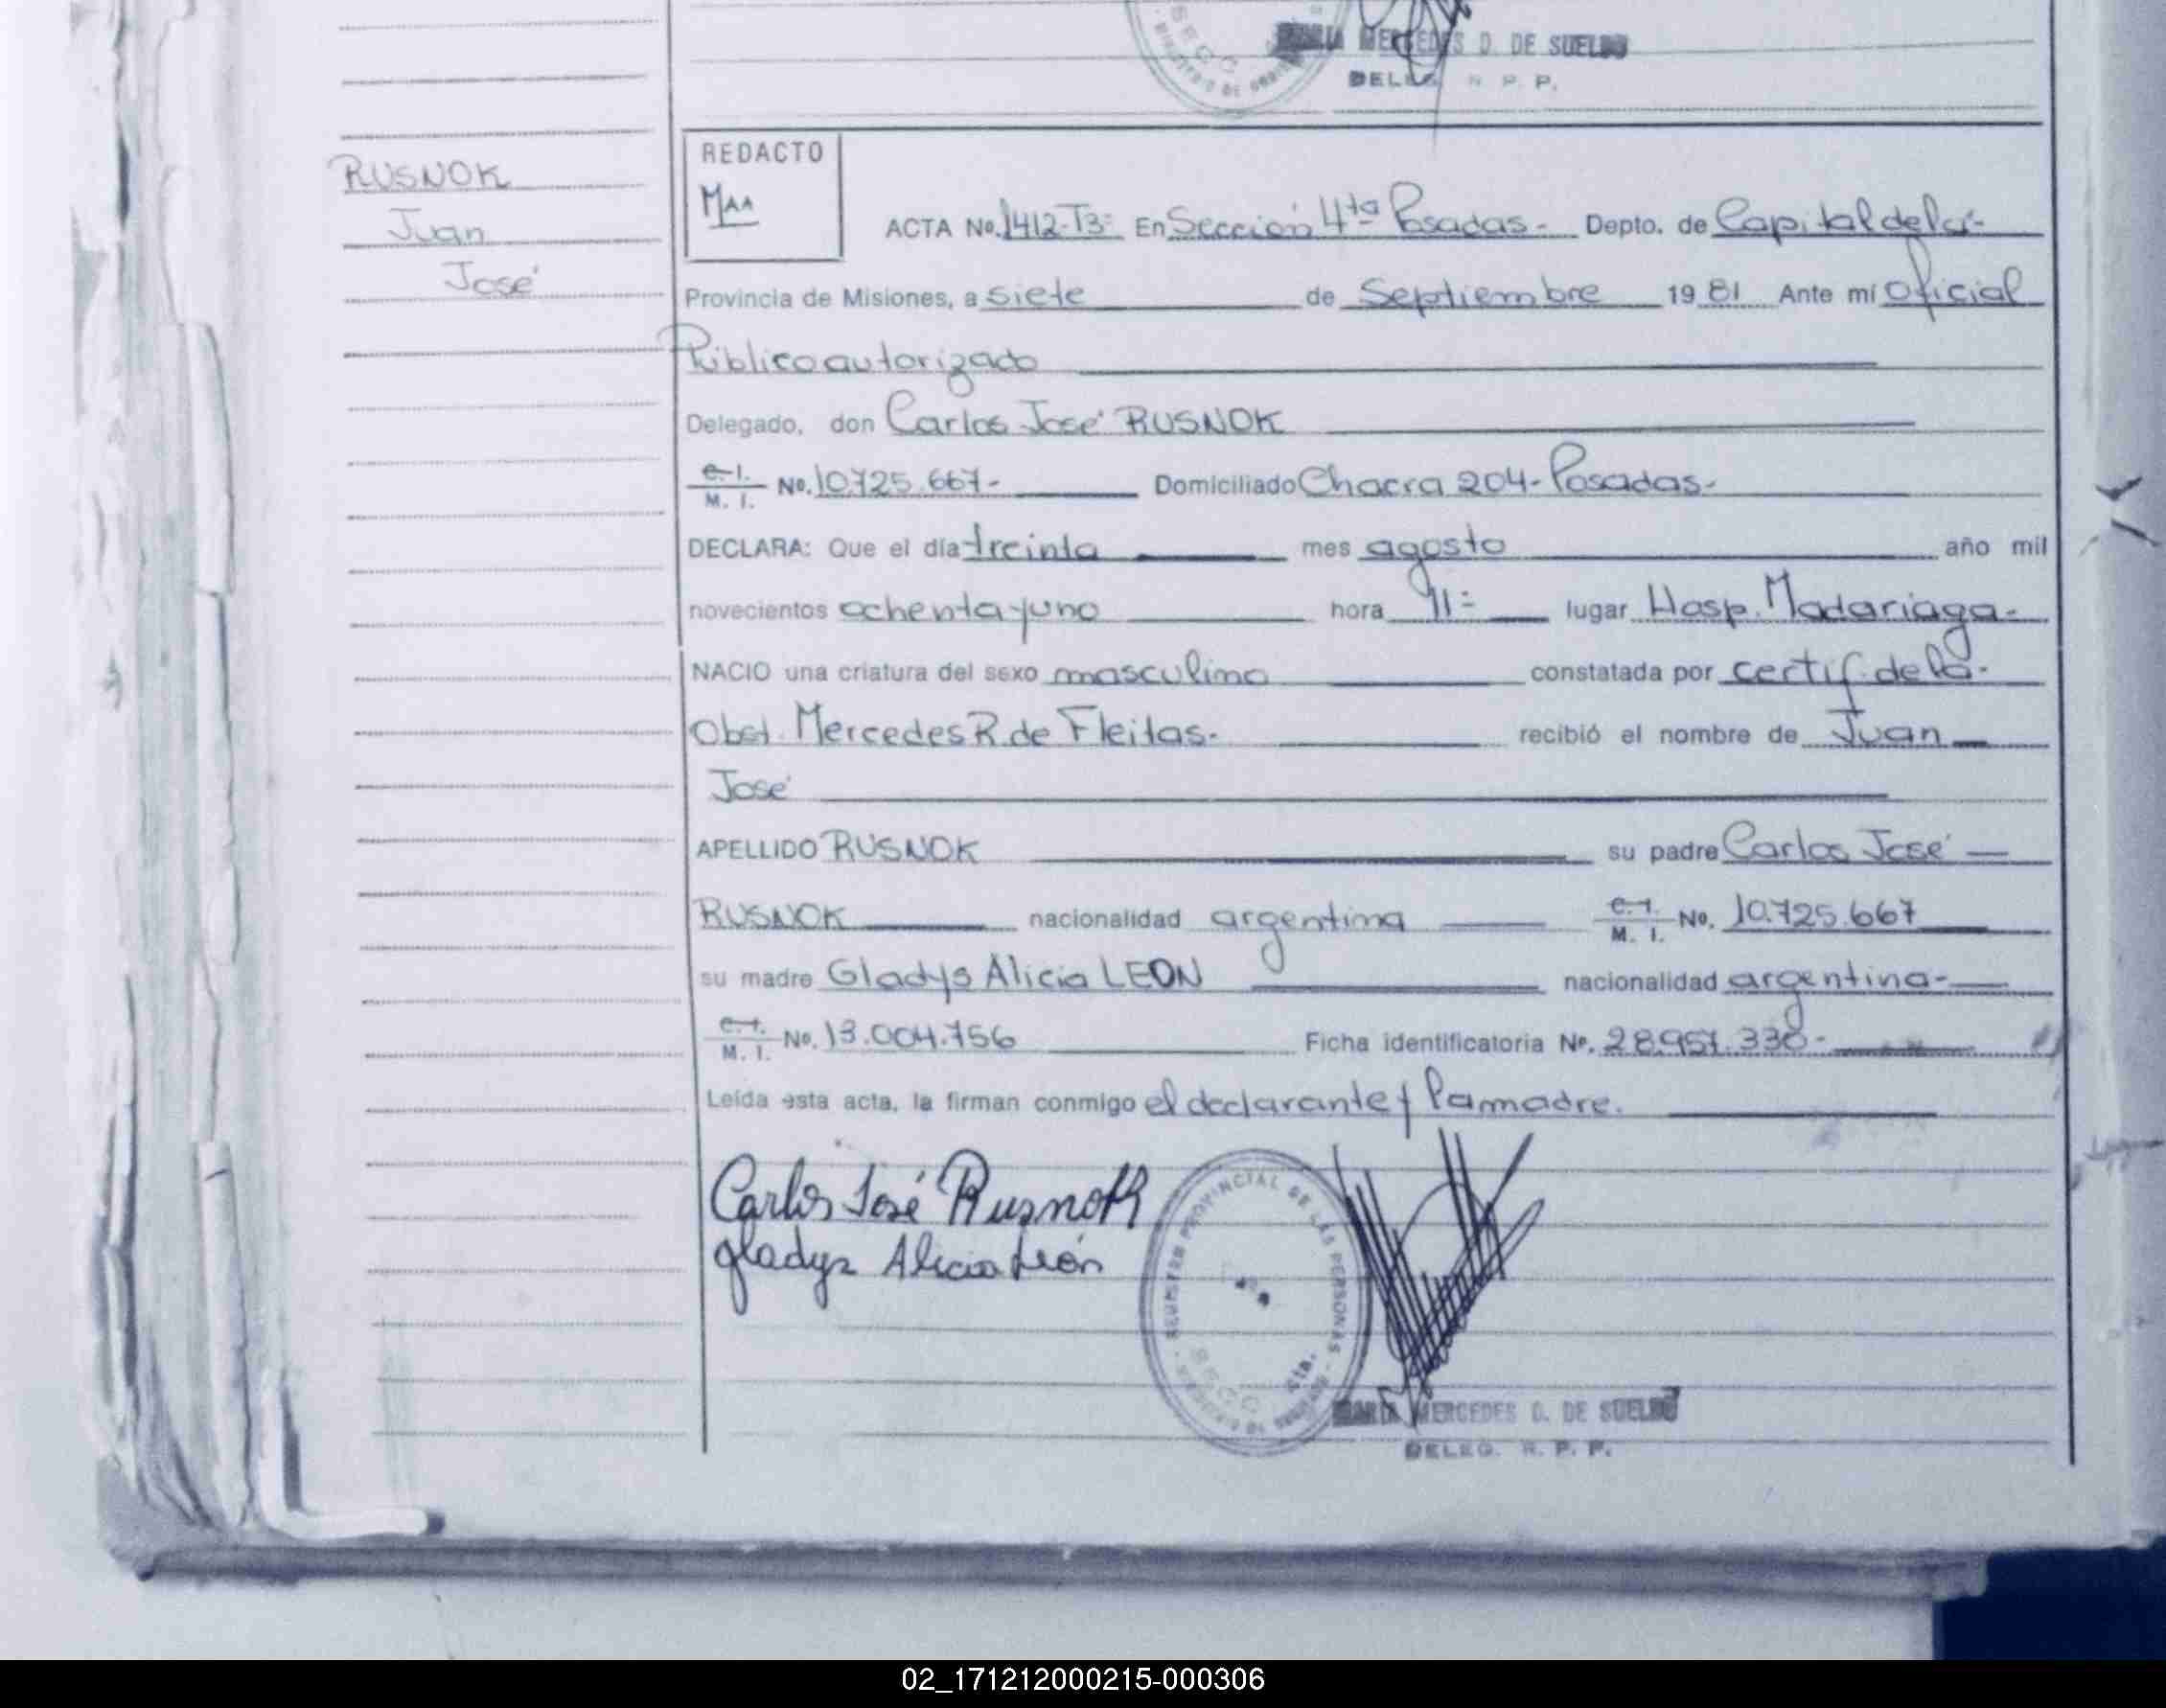 MERCEDES D. DE SUELDO
DELEG. R. P. P.
RUSNOK
Juan
José
REDACTO
MAA
ACTA No. 1412-T3- En Sección 4ta Posadas- Depto. de Capital de la-
Provincia de Misiones, a siete de Septiembre 19 81 Ante mí Oficial
Público autorizado
Delegado, don Carlos José RUSNOK
C. I. M. I. No. 10.725.667- Domiciliado Chacra 204- Posadas-
DECLARA: Que el día treinta mes agosto año mil
novecientos ochenta y uno hora 11- lugar Hosp. Madariaga-
NACIO una criatura del sexo masculino constatada por certif. de la-
Obst. Mercedes R. de Fleitas- recibió el nombre de Juan
José
APELLIDO RUSNOK su padre Carlos José
RUSNOK nacionalidad argentina C. I. M. I. No. 10.725.667
su madre Gladys Alicia LEON nacionalidad argentina-
C. I. M. I. No. 13.004.756 Ficha identificatoria No. 28.951.338-
Leída esta acta, la firman conmigo el declarante y la madre.
Carlos José Rusnok
gladys Alicia León
REGISTRO PROVINCIAL DE LAS PERSONAS
SECC 4ta.
MARIA MERCEDES D. DE SUELDO
DELEG. R. P. P.
02_171212000215-000306